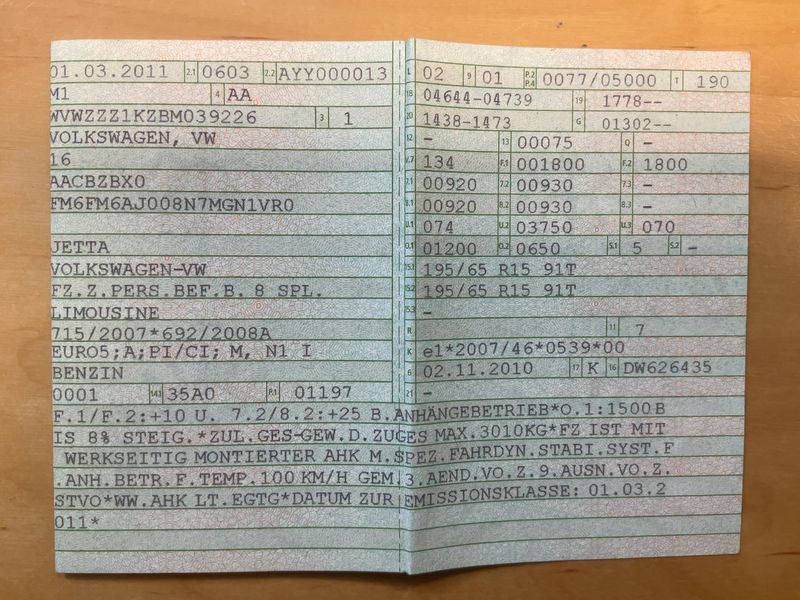 01.03.2011 2.1 0603 2.2 AYY000013 L 02 9 01 P.2 P.4 0077/05000 T 190
M1 4 AA 18 04644-04739 19 1778--
WVWZZZ1KZBM039226 3 1 20 1438-1473 G 01302--
VOLKSWAGEN, VW 12 - 13 00075 Q -
16 V.7 134 F.1 001800 F.2 1800
AACBZBX0 7.1 00920 7.2 00930 7.3 -
FM6FM6AJ008N7MGN1VR0 8.1 00920 8.2 00930 8.3 -
U.1 074 U.2 03750 U.3 070
JETTA O.1 01200 O.2 0650 S.1 5 S.2 -
VOLKSWAGEN-VW 15.1 195/65 R15 91T
FZ.Z.PERS.BEF.B. 8 SPL. 15.2 195/65 R15 91T
LIMOUSINE 15.3 -
715/2007*692/2008A R 11 7
EURO5;A;PI/CI; M, N1 I K e1*2007/46*0539*00
BENZIN 6 02.11.2010 17 K 16 DW626435
0001 14.1 35A0 P.1 01197 21 -
F.1/F.2:+10 U. 7.2/8.2:+25 B.ANHÄNGEBETRIEB*O.1:1500 B
IS 8% STEIG.*ZUL.GES-GEW.D.ZUGES MAX.3010KG*FZ IST MIT
WERKSEITIG MONTIERTER AHK M.SPEZ.FAHRDYN.STABI.SYST.F
.ANH.BETR.F.TEMP.100 KM/H GEM.3.AEND.VO.Z.9.AUSN.VO.Z.
STVO*WW.AHK LT.EGTG*DATUM ZUR EMISSIONSKLASSE: 01.03.2
011*